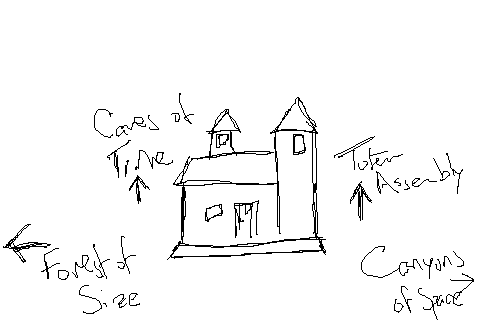 Caves of
Time
Totem
Assembly
Forest of
Size
Canyons
of Space